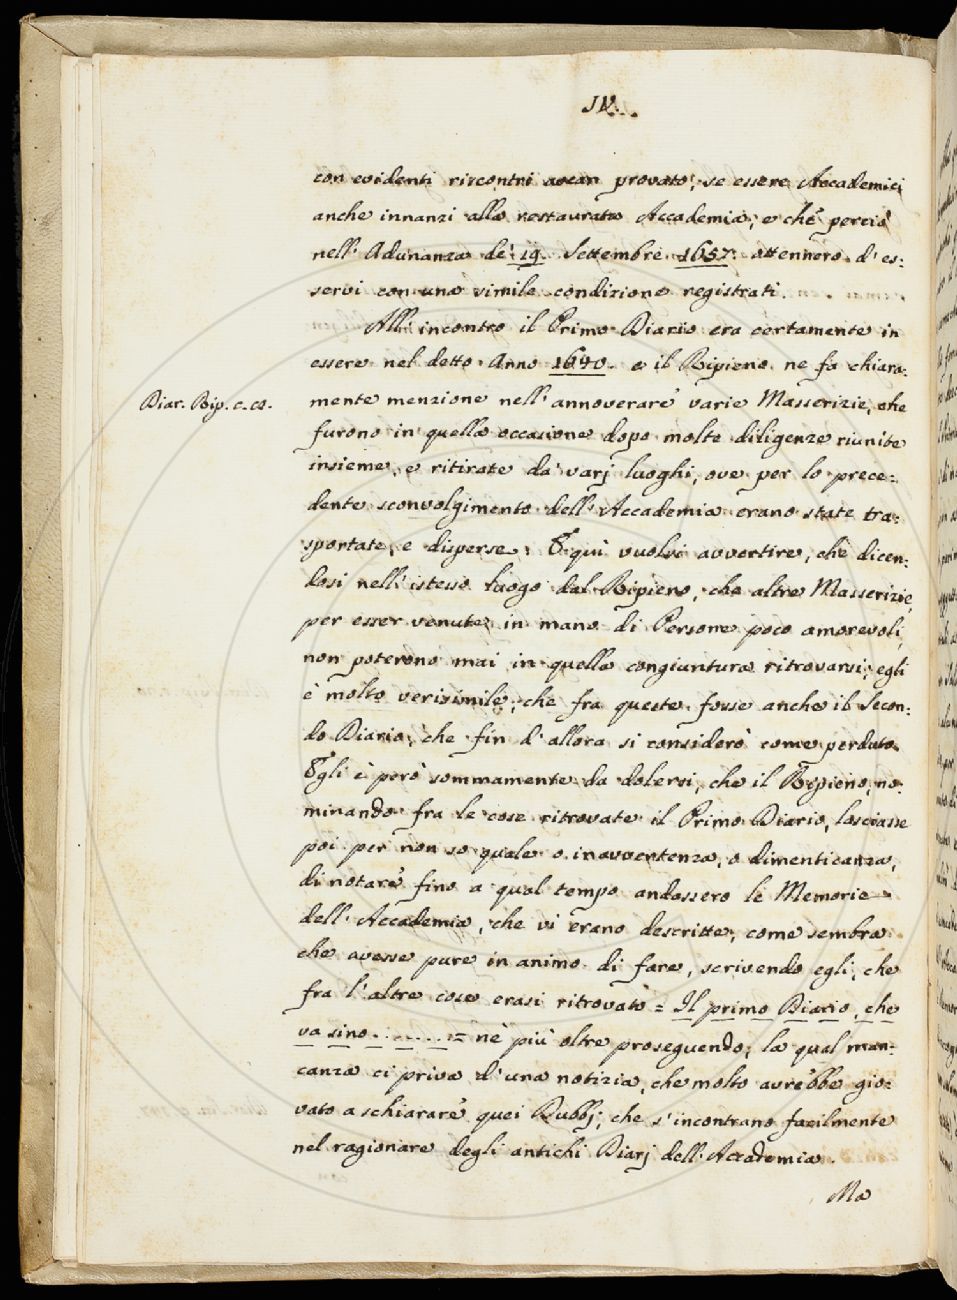 IV.
con evidenti riscontri avean provato, se essere Accademici
anche innanzi alla restaurata Accademia, e che perciò
nell' Adunanza de' 19. Settembre 1657. ottennero d' es:
servi con una simile condizione registrati.
All' incontro il Primo Diario era certamente in
essere nel detto Anno 1640. e il Ripieno ne fa chiara:
Diar. Rip. c. 62.
mente menzione nell' annoverare varie Masserizie, che
furono in quella occasione dopo molte diligenze riunite
insieme, e ritirate da varj luoghi, ove per lo prece:
dente sconvolgimento dell' Accademia erano state tra:
sportate, e disperse. E quì vuolsi avvertire, che dicen:
dosi nell' istesso luogo dal Ripieno, che altre Masserizie,
per esser venute in mano di Persone poco amorevoli,
non poterono mai in quella congiuntura ritrovarsi; egli
è molto verisimile, che fra queste fosse anche il Secon:
do Diario, che fin d' allora si considerò come perduto.
Egli è però sommamente da dolersi, che il Ripieno, no:
minando fra le cose ritrovate il Primo Diario, lasciasse
poi per non so quale o inavvertenza, o dimenticanza,
di notare fino a qual tempo andassero le Memorie
dell' Accademia, che vi erano descritte, come sembra
che avesse pure in animo di fare, scrivendo egli, che
fra l' altre cose erasi ritrovato = Il primo Diario, che
va sino . . . . . . = nè più oltre proseguendo; la qual man:
canza ci priva d' una notizia, che molto avrebbe gio:
vato a schiarare quei Dubbj, che s' incontrano facilmente
nel ragionare degli antichi Diarj dell' Accademia.
Ma